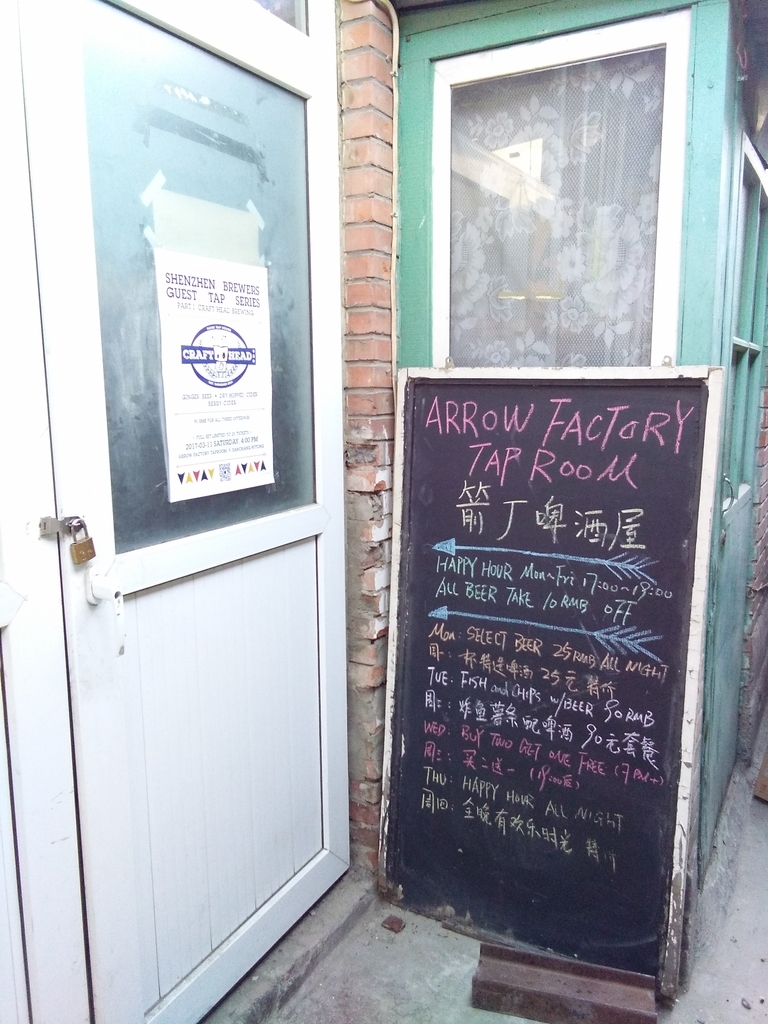 SHENZHEN BREWERS
GUEST TAP SERIES
PART I CRAFT HEAD BREWING
CRAFT HEAD
GINGER BEER • DRY HOPPED CIDER
BERRY CIDER
2017-03-11 SATURDAY 4:00 PM
ARROW FACTORY TAPROOM
ARROW FACTORY
TAP ROOM
箭厂啤酒屋
HAPPY HOUR Mon~Fri 17:00~19:00
ALL BEER TAKE 10 RMB OFF
Mon: SELECT BEER 25RMB ALL NIGHT
周一: 杯精选啤酒 25元 特价
TUE: FISH and CHIPS w/BEER 90RMB
周二: 炸鱼薯条配啤酒 90元套餐
WED: BUY TWO GET ONE FREE (7PM+)
周三: 买二送一 (19:00后)
THU: HAPPY HOUR ALL NIGHT
周四: 全晚有欢乐时光 特价